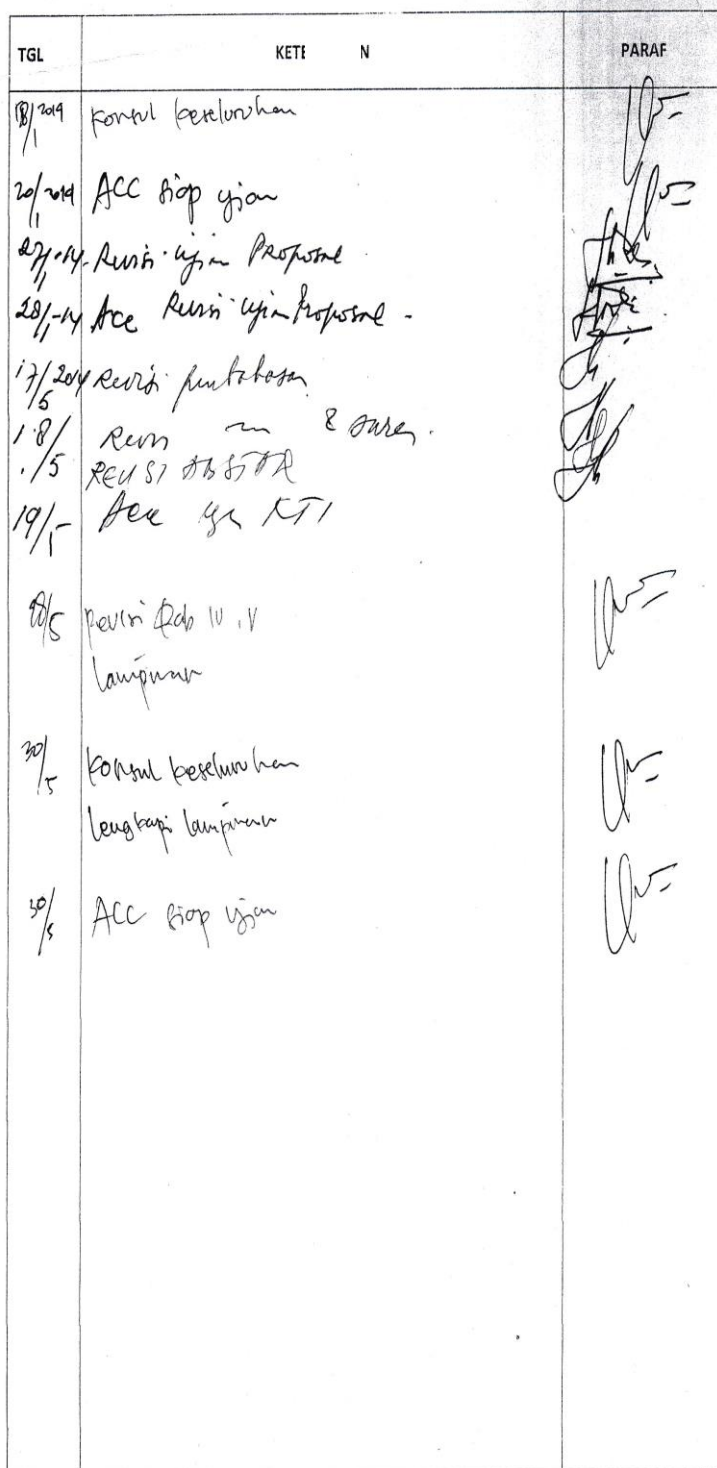 TGL KETE N PARAF
18/1 2014 Konsul keseluruhan
20/1 2014 ACC siap ujian
27/1-14 Revisi ujian Proposal
28/1-14 Acc Revisi ujian Proposal -
17/5 2014 Revisi pembahasan
18/5 Revisi & saran.
REVISI ABSTRAK
19/5 Acc KTI
revisi Bab IV, V
lampiran
30/5 Konsul keseluruhan
lengkapi lampiran
30/5 ACC siap ujian